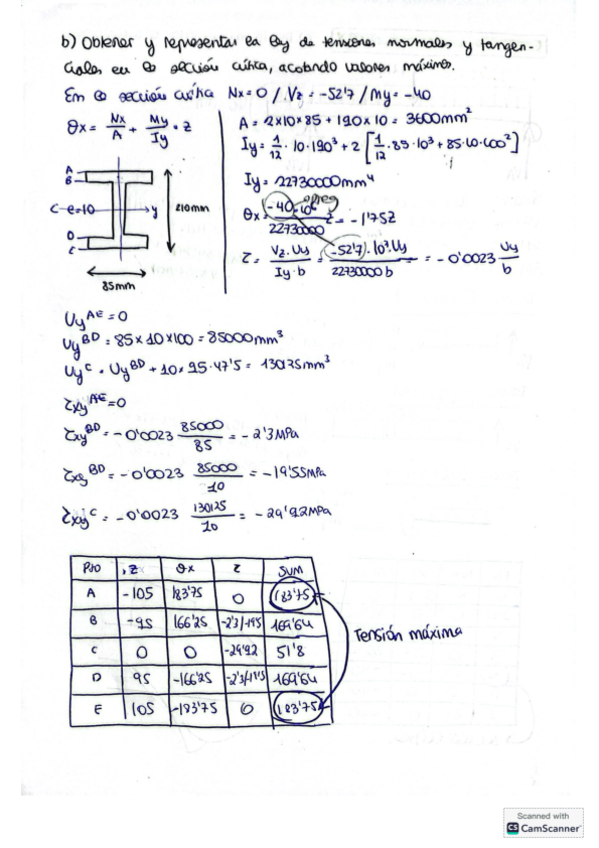 b) Obtener y representar la ley de tensiones normales y tangen-
ciales en la sección crítica, acotando valores máximos.
En la sección crítica Nx=0 / Vz = -52'7 / My = -40
σx = Nx/A + My/Iy · z
A = 2x10x85 + 190x10 = 3600mm²
Iy = 1/12 · 10·190³ + 2 [1/12 · 85·10³ + 85·10·100²]
Iy = 22730000mm⁴
σx = -40·10⁶/22730000 z = -1'75z
τ = Vz·Uy/Iy·b = (-52'7)·10³·Uy/22730000 b = -0'0023 Uy/b
A
B
C e=10
y
D
E
210mm
85mm
Uy^AE = 0
Uy^BD = 85x10x100 = 85000mm³
Uy^C = Uy^BD + 10x95·47'5 = 130125mm³
τxy^AE = 0
τxy^BD = -0'0023 85000/85 = -2'3MPa
τxz^BD = -0'0023 85000/10 = -19'55MPa
τxy^C = -0'0023 130125/10 = -29'92MPa
Pto z σx τ SUM
A -105 183'75 0 183'75
B -95 166'25 -2'3/-19'5 169'64
C 0 0 -29'92 51'8
D 95 -166'25 -2'3/-19'5 169'64
E 105 -183'75 0 183'75
Tensión máxima
Scanned with
CS CamScanner